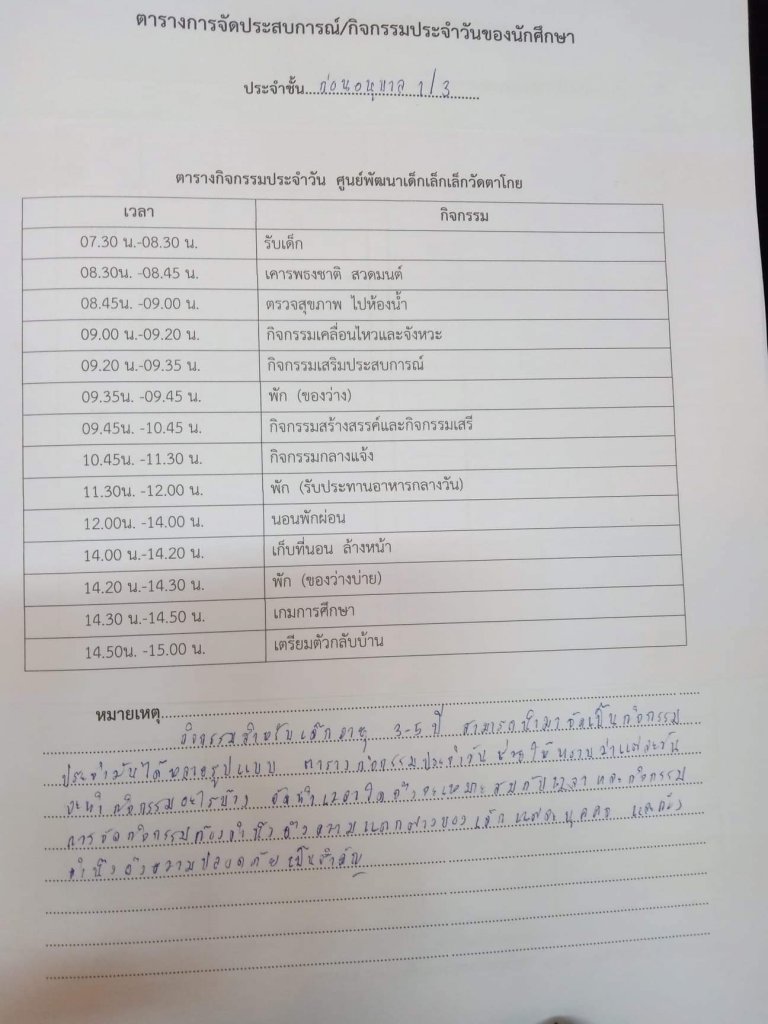 ตารางการจัดประสบการณ์/กิจกรรมประจำวันของนักศึกษา
ประจำชั้น...ก่อนอนุบาล 1/3
ตารางกิจกรรมประจำวัน ศูนย์พัฒนาเด็กเล็กเล็กวัดตาโกย
เวลา กิจกรรม
07.30 น.-08.30 น. รับเด็ก
08.30น. -08.45 น. เคารพธงชาติ สวดมนต์
08.45น. -09.00 น. ตรวจสุขภาพ ไปห้องน้ำ
09.00 น.-09.20 น. กิจกรรมเคลื่อนไหวและจังหวะ
09.20 น.-09.35 น. กิจกรรมเสริมประสบการณ์
09.35น. -09.45 น. พัก (ของว่าง)
09.45น. -10.45 น. กิจกรรมสร้างสรรค์และกิจกรรมเสรี
10.45น. -11.30 น. กิจกรรมกลางแจ้ง
11.30น. -12.00 น. พัก (รับประทานอาหารกลางวัน)
12.00น. -14.00 น. นอนพักผ่อน
14.00 น.-14.20 น. เก็บที่นอน ล้างหน้า
14.20 น.-14.30 น. พัก (ของว่างบ่าย)
14.30 น.-14.50 น. เกมการศึกษา
14.50น. -15.00 น. เตรียมตัวกลับบ้าน
หมายเหตุ
กิจกรรมสำหรับเด็กอายุ 3-5 ปี สามารถนำมาจัดเป็นกิจกรรม
ประจำวันได้หลายรูปแบบ ตารางกิจกรรมประจำวัน ช่วยให้ทราบว่าแต่ละวัน
จะทำกิจกรรมอะไรบ้าง จัดทำเวลาใดถึงจะเหมาะสมกับเวลา และกิจกรรม
การจัดกิจกรรมต้องคำนึงถึงความแตกต่างของเด็กแต่ละบุคคล และต้อง
คำนึงถึงความปลอดภัยเป็นสำคัญ